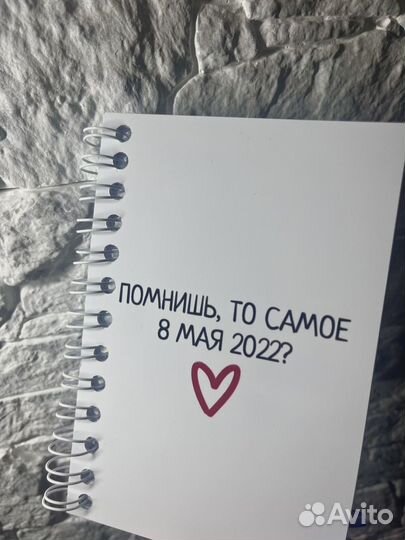 ПОМНИШЬ, ТО САМОЕ
8 МАЯ 2022?
Avito